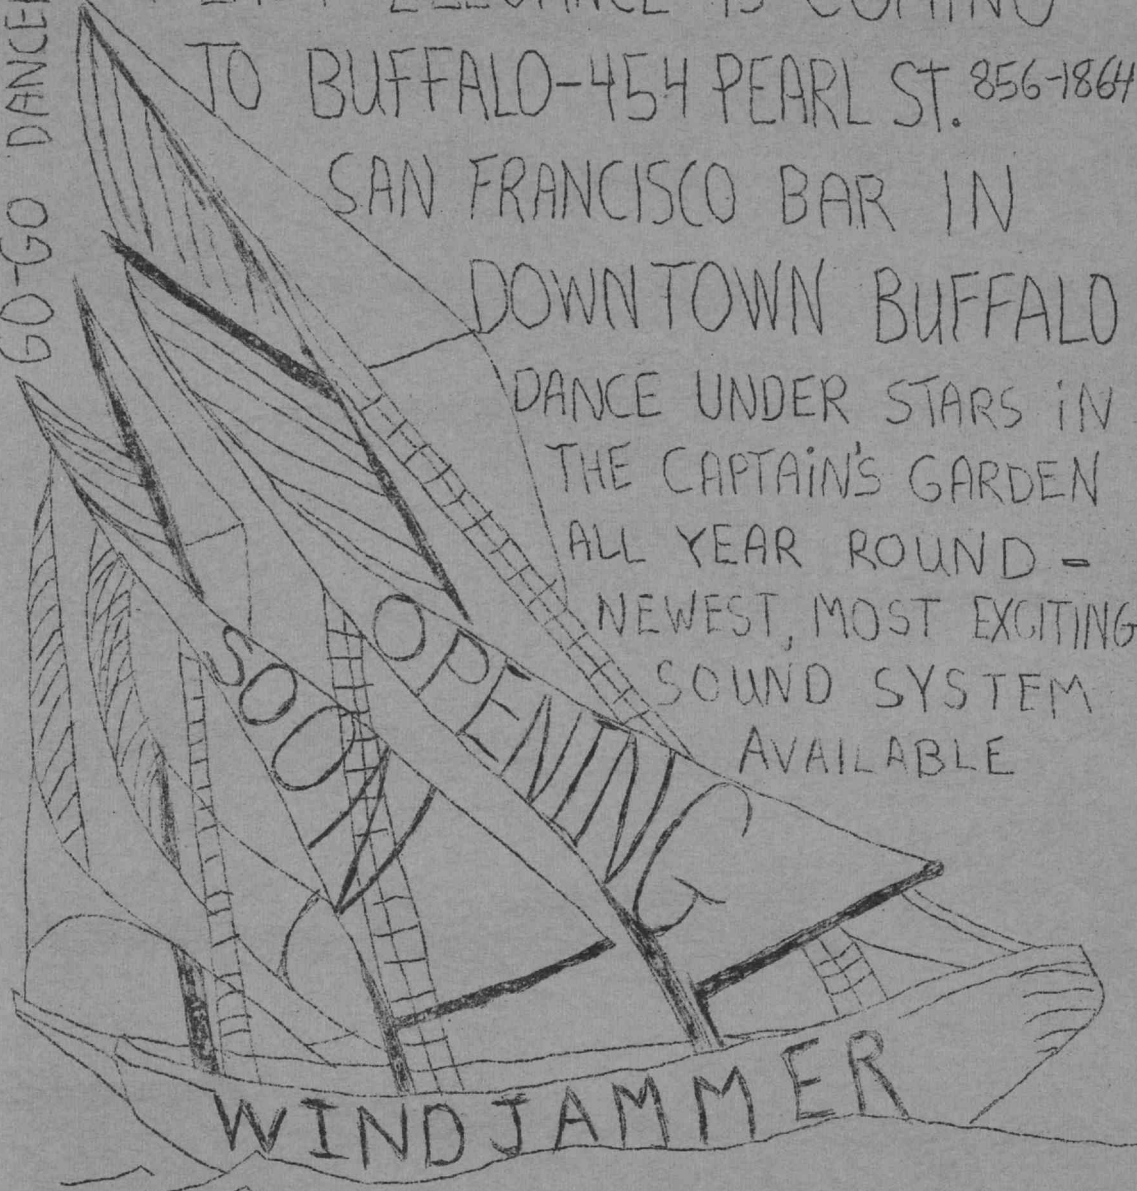 ELEGANCE IS COMING
TO BUFFALO-454 PEARL ST. 856-1864
SAN FRANCISCO BAR IN
DOWNTOWN BUFFALO
DANCE UNDER STARS iN
THE CAPTAiN'S GARDEN
ALL YEAR ROUND -
NEWEST, MOST EXCITING
SOUND SYSTEM
AVAILABLE
GO-GO DANCE
OPENING
SOON
WINDJAMMER